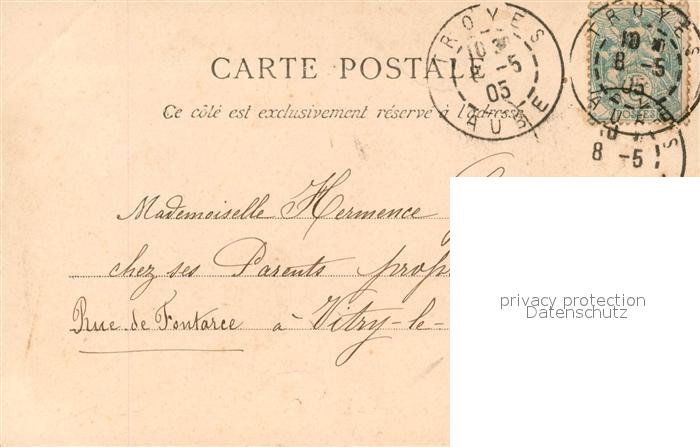 CARTE POSTALE
Ce côté est exclusivement réservé à l'adresse
TROYES
10
8 -5
05
AUBE
TROYES
10
8 -5
05
AUBE
POSTES
10
8 -5
Mademoiselle Hermence
chez ses Parents prop
Rue de Fontarce à Vitry-le-
privacy protection
Datenschutz